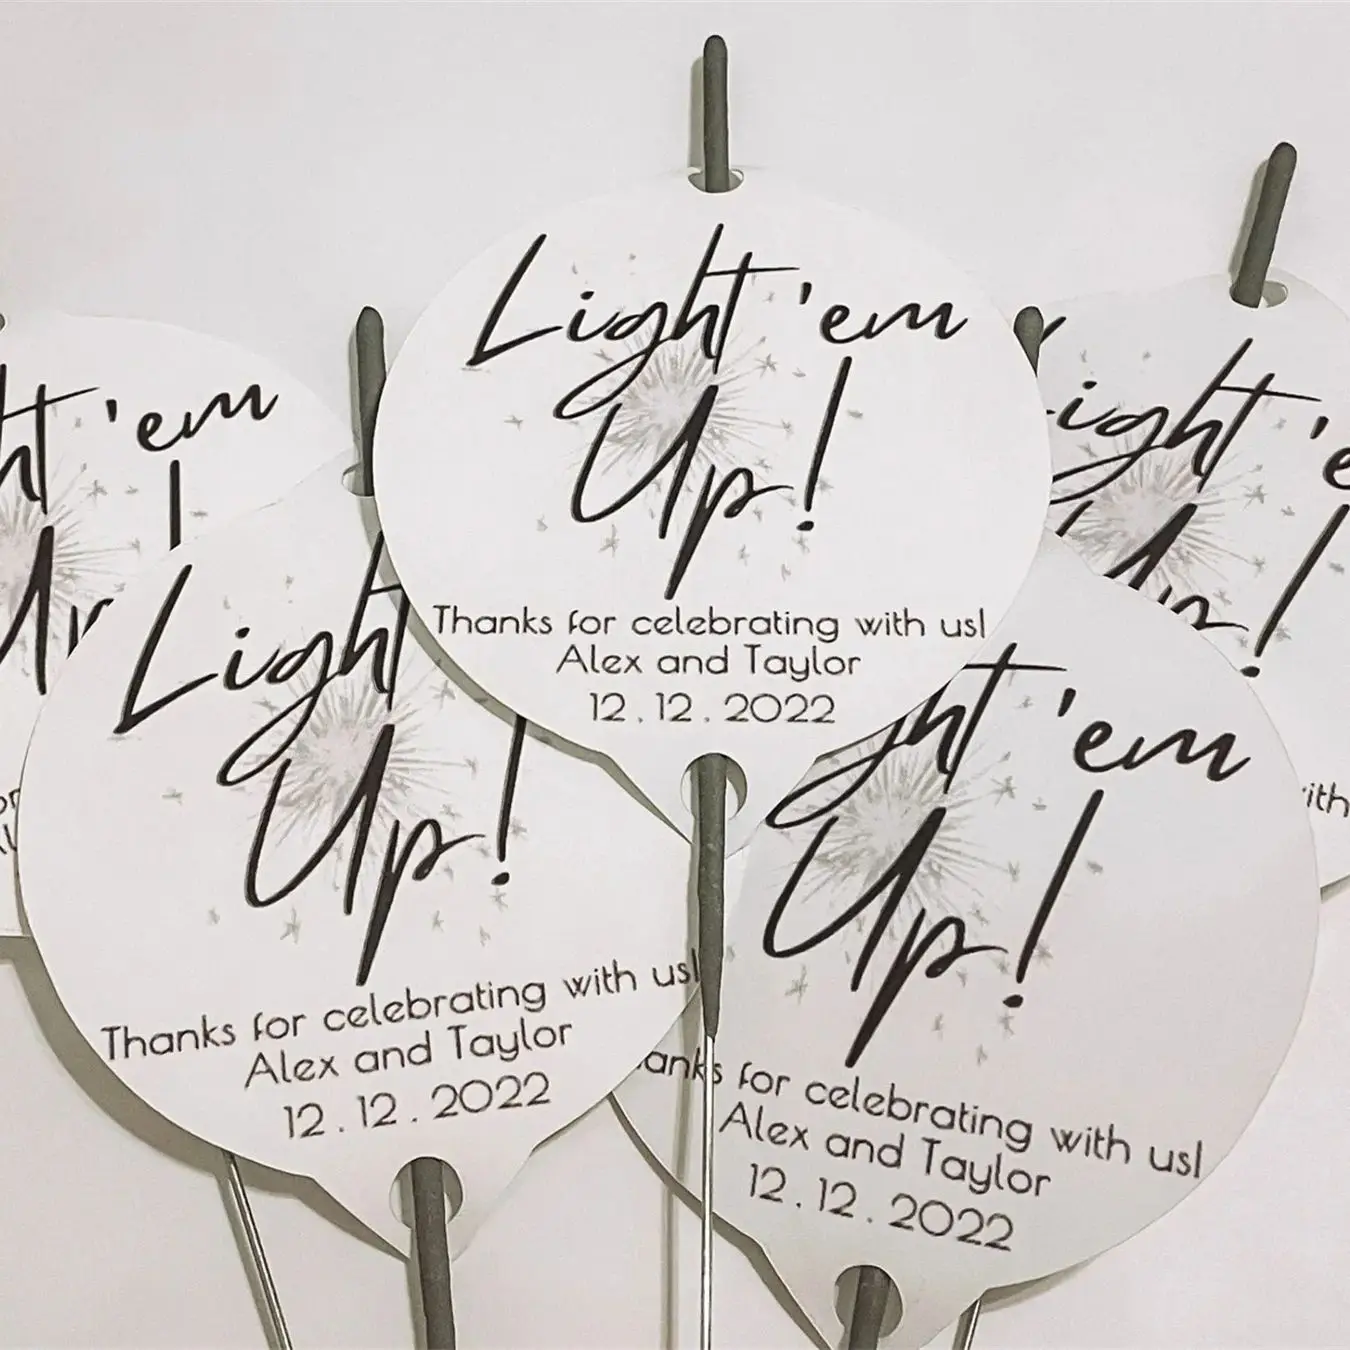 Light 'em
Up!
Thanks for celebrating with us!
Alex and Taylor
12.12.2022
'em
Light
Up!
Thanks for celebrating with us!
Alex and Taylor
12.12.2022
'em
Up!
for celebrating with us!
Alex and Taylor
12.12.2022